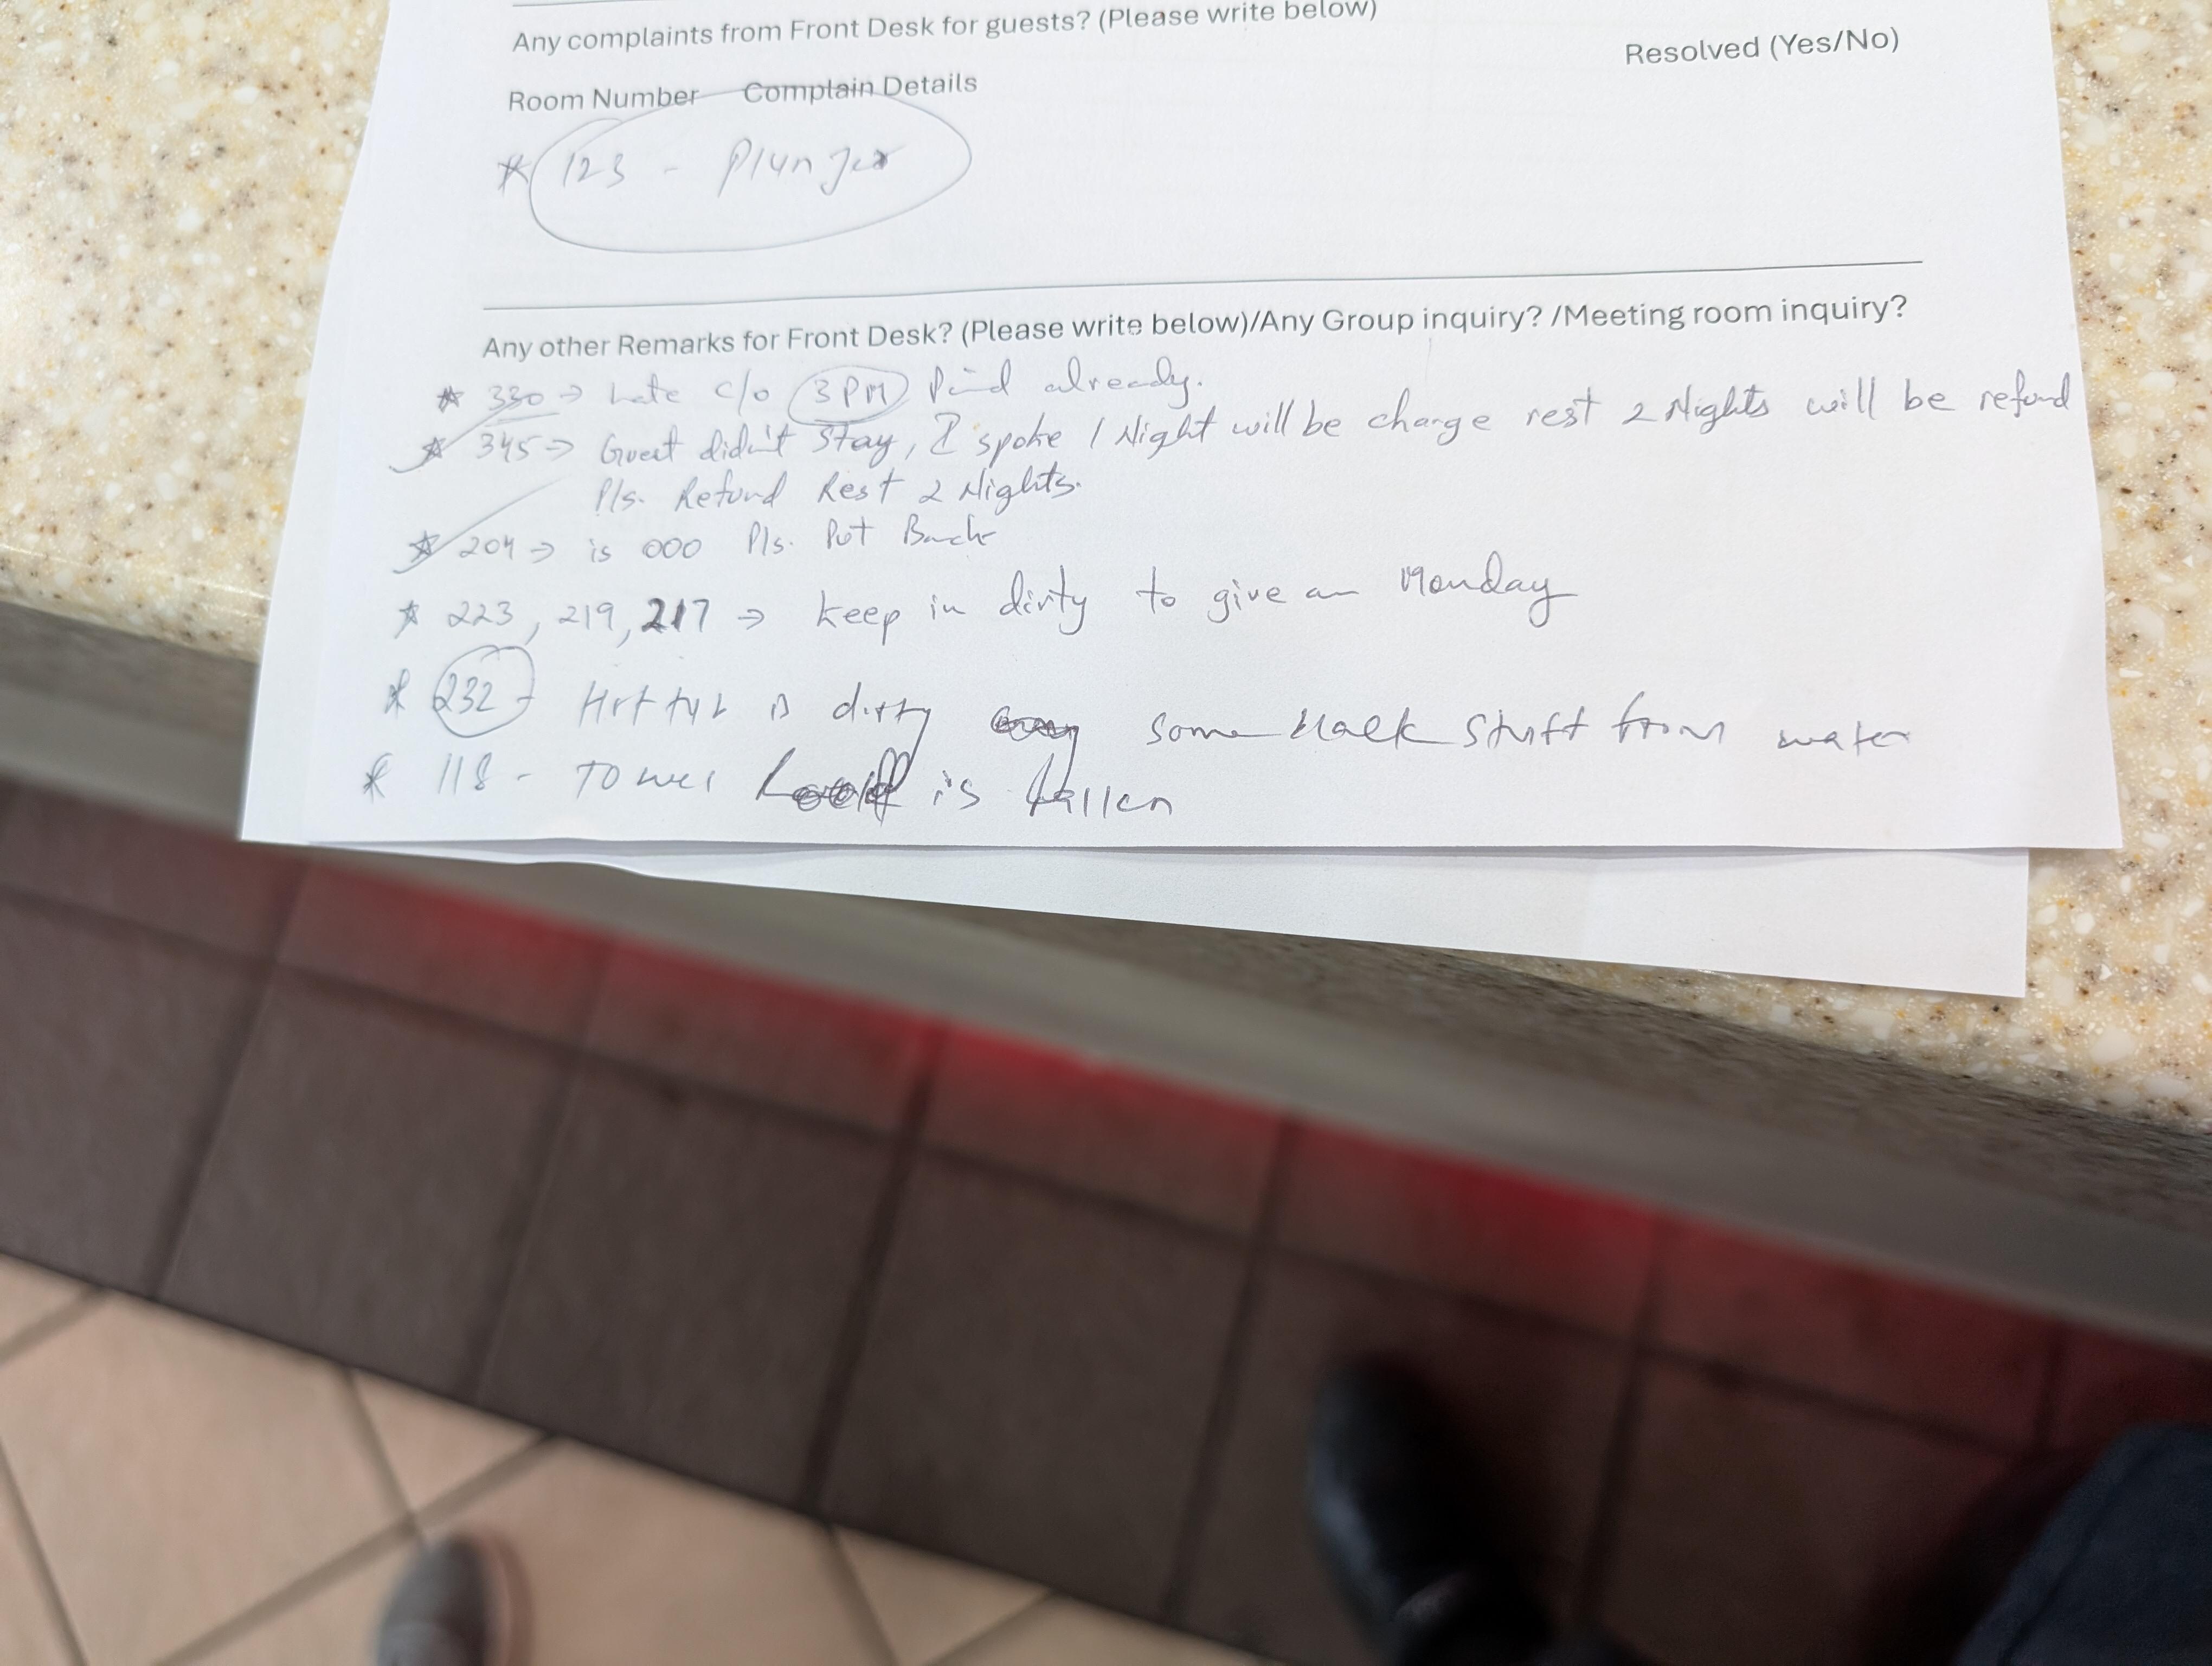 Any complaints from Front Desk for guests? (Please write below)
Resolved (Yes/No)
Room Number Complain Details
* 123 - Plunger
Any other Remarks for Front Desk? (Please write below)/Any Group inquiry? /Meeting room inquiry?
* 330 → Late c/o 3 PM Paid already.
* 345 → Guest didn't Stay, I spoke 1 Night will be charge rest 2 Nights will be refund
Pls. Refund Rest 2 Nights.
* 204 → is OOO Pls. Put Back
* 223, 219, 217 → keep in dirty to give on Monday
* 232 - Hot tub is dirty some black stuff from water
* 118 - Towel is fallen